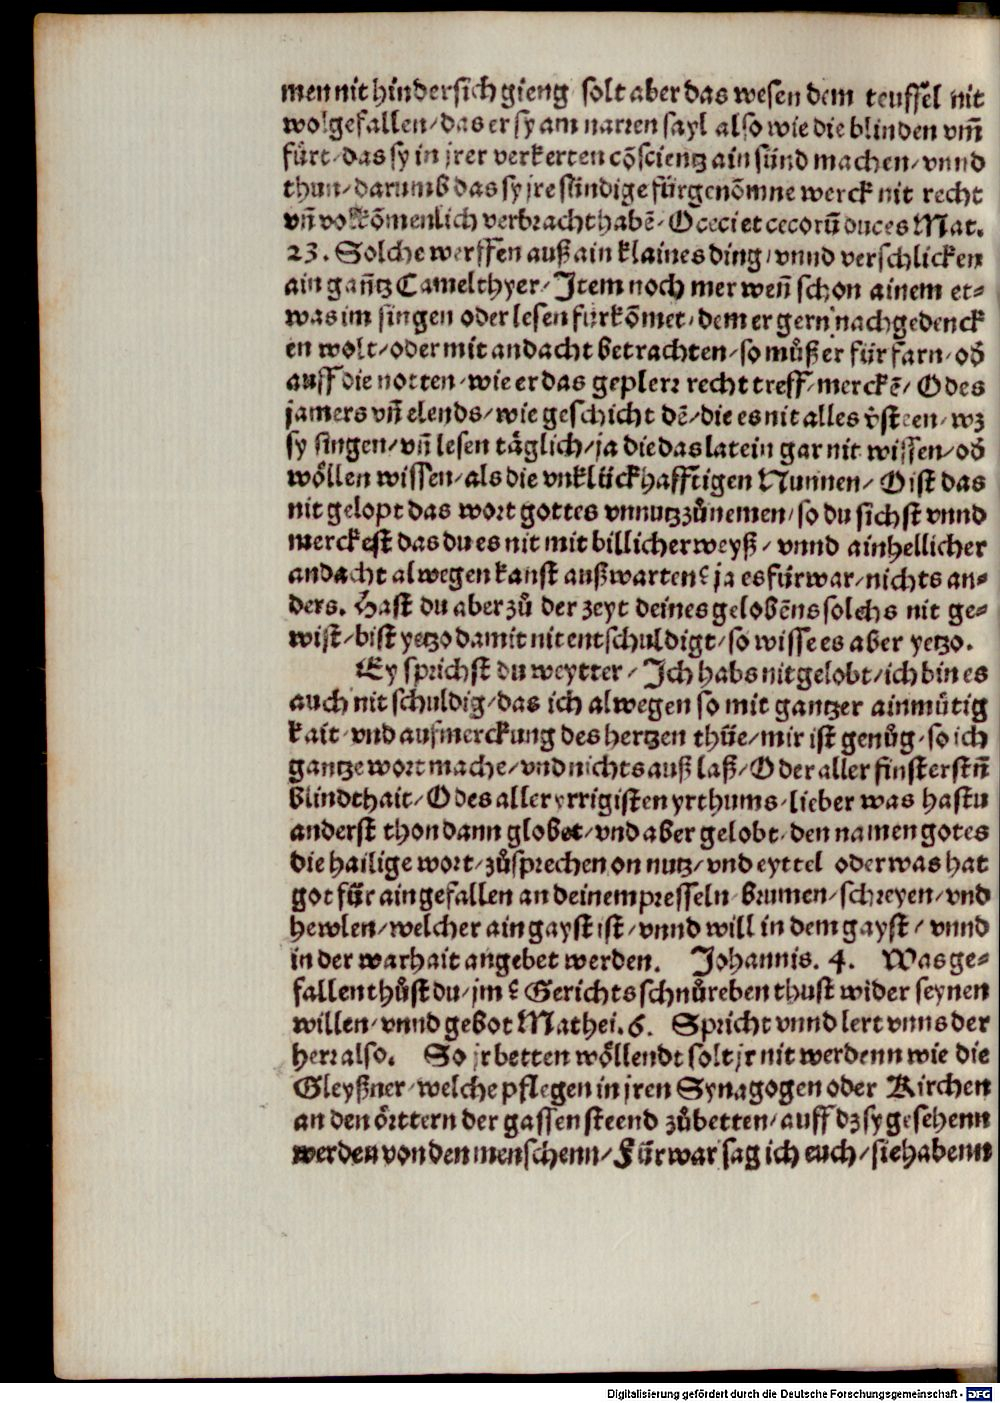 men nit hindersich gieng / solt aber das wesen dem teuffel nit
wolgefallen / das er sy am narren sayl also wie die blinden vm̃
fůrt / das sy in jrer verkerten cõscientz ain sünd machen / vnnd
thun / darumb das sy jre sündige fürgenõmne werck nit recht
vñ volkõmenlich verbracht habẽ / O ceci et cecorũ duces Mat.
23. Solche werffen auß ain klaines ding / vnnd verschlicken
ain gañtz Camelthyer / Item noch mer weñ schon ainem et⸗
was im singen oder lesen fürkõmet / dem er gern nachgedenck
en wolt / oder mit andacht betrachten / so můß er für farn / od̕
auff die notten / wie er das geplerr recht treff / merckẽ / O des
jamers vñ elends / wie geschicht dẽ / die es nit alles v̕steen / wz
sy singen / vñ lesen täglich / ja die das latein gar nit wissen / od̕
wöllen wissen / als die vnklückhafftigen Nunnen / O ist das
nit gelopt das wort gottes vnnutz zůnemen / so du sichst vnnd
merckest das du es nit mit billicher weyß / vnnd ainhellicher
andacht alwegen kanst außwarten? ja es fürwar / nichts an⸗
ders. Hast du aber zů der zeyt deines gelobẽns solchs nit ge⸗
wist / bist yetzo damit nit entschuldigt / so wisse es aber yetzo.
Ey sprichst du weytter / Ich habs nit gelobt / ich bin es
auch nit schuldig / das ich alwegen so mit gantzer ainmütig
kait / vnd aufmerckung des hertzen thüe / mir ist genůg / so ich
gantze wort mache / vnd nichts auß laß / O der aller finsterstñ
blindthait / O des aller yrrigisten yrthums / lieber was hastu
anderst thon dann globet / vnd aber gelobt / den namen gotes
die hailige wort / zůsprechen on nutz / vnd eyttel oder was hat
got für ain gefallen an deinem presseln / brumen / schreyen / vnd
hewlen / welcher ain gayst ist / vnnd will in dem gayst / vnnd
in der warhait angebet werden. Johannis. 4. Was ge⸗
fallen thůst du / jm? Gerichts schnůreben thust wider seynen
willen / vnnd gebot Mathei. 6. Spricht vnnd lert vnns der
herr also. So jr betten wöllendt solt jr nit werdenn wie die
Gleyßner / welche pflegen in jren Synagogen oder Kirchen
an den örttern der gassen steend zůbetten / auff dz sy gesehenn
werden von den menschenn / Fürwar sag ich euch / sie habenn
Digitalisierung gefördert durch die Deutsche Forschungsgemeinschaft - DFG